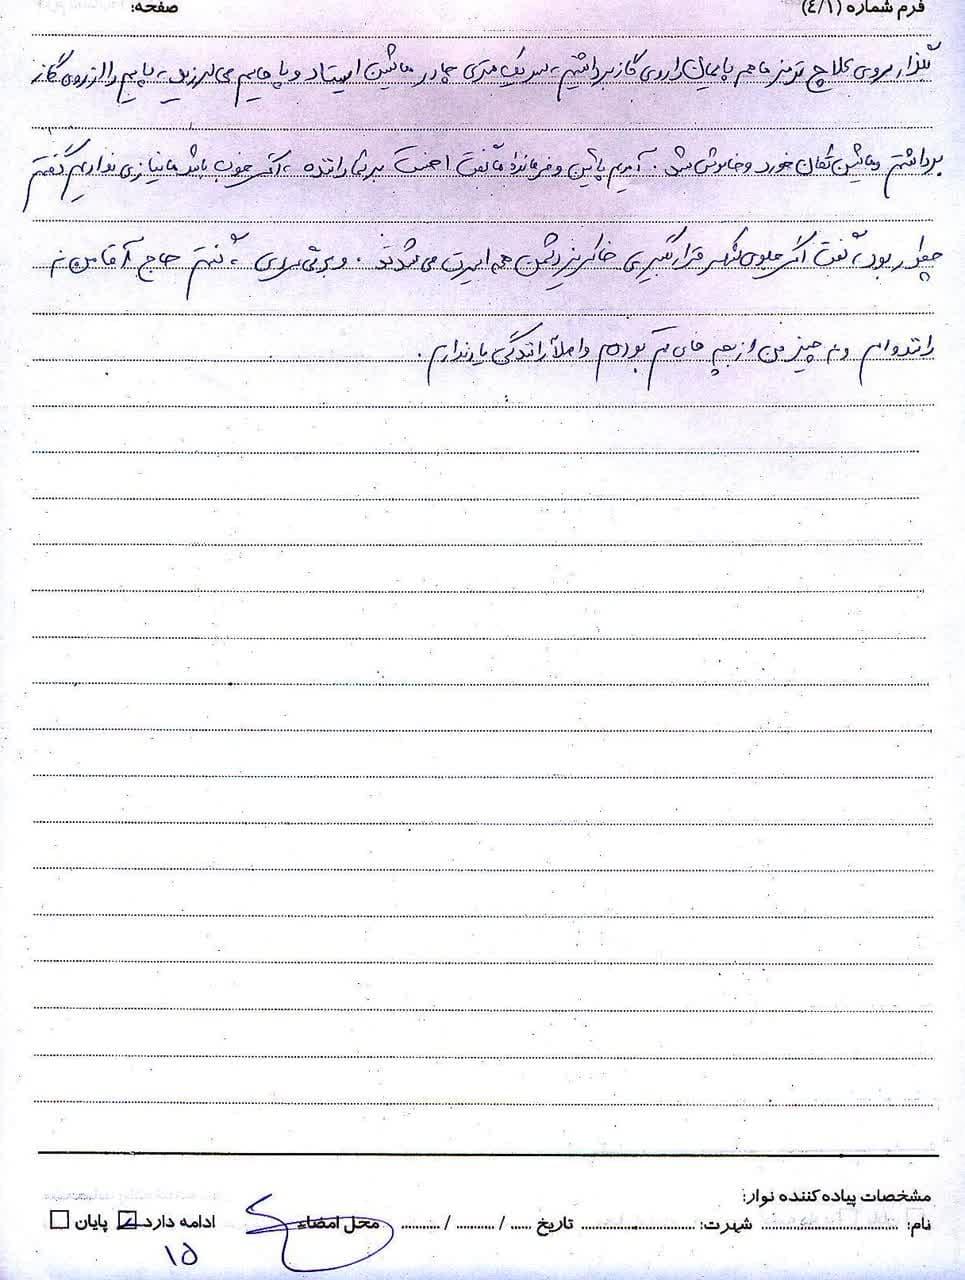 فرم شماره (۴/۱) صفحه:
بگذار بروی کلاج ترمز ما هم پایمان را روی گاز برداشتیم، سر یک متری چادر ماشین ایستاد و پاهایم می‌لرزید، پایم را از روی گاز
برداشتم و ماشین تکان خورد و خاموش شد. آمدیم پائین و فرمانده گفت احسنت بر شما راننده، خوب باشد ما نیازی نداریم گفتم
چطور بود، گفت اگر جلوی لشکر قرار بگیری خاکریز دشمن همه اسیرت می‌شدند. و برقی میروی، گفتم حاج آقا من نه
راننده‌ام و نه چیز من از بچه های قم بودم و اصلاً رانندگی یاد ندارم.
مشخصات پیاده کننده نوار:
نام: شهرت: تاریخ / / محل امضاء ادامه دارد پایان
۱۵